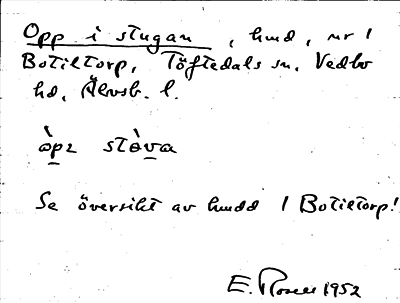 Opp i stugan, hmd, nr 1
Botiltorp, Töftedals sn, Vedbo
hd, Älvsb. l.
òpɪ stòva
Se översikt av hmdd 1 Botiltorp!
E. Rosell 1952